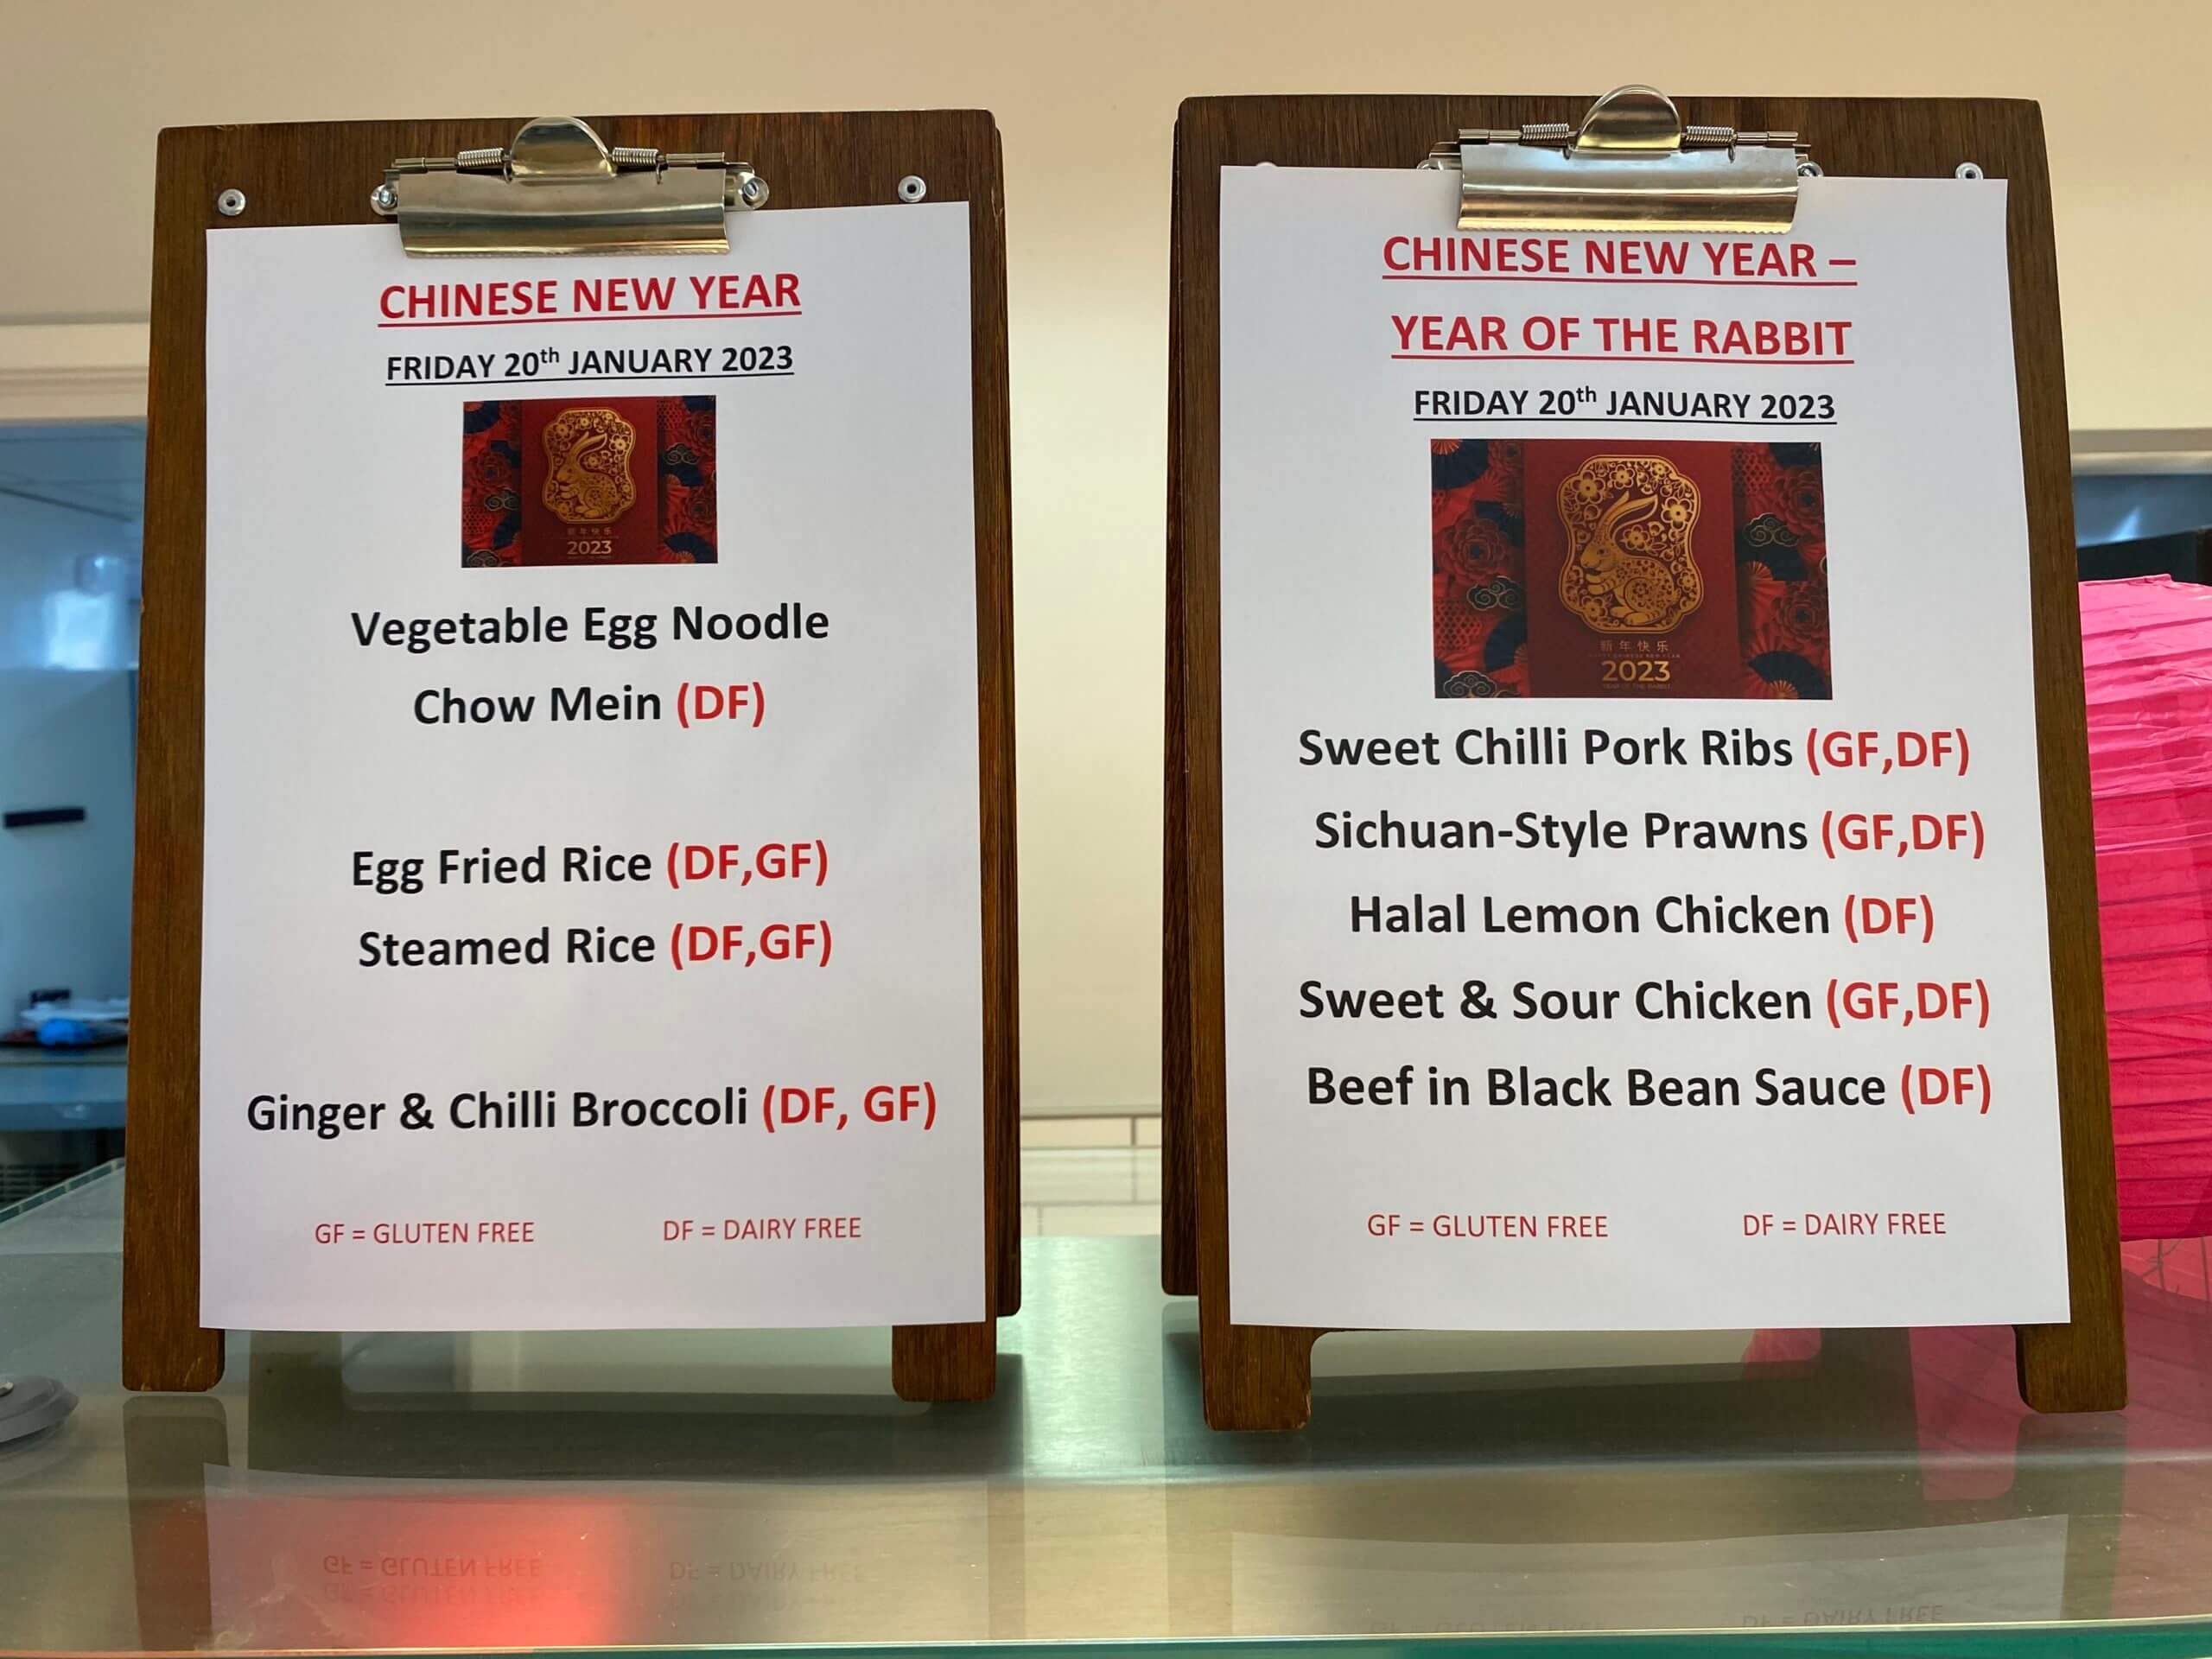 CHINESE NEW YEAR
FRIDAY 20th JANUARY 2023
新年快乐
2023
Vegetable Egg Noodle
Chow Mein (DF)
Egg Fried Rice (DF,GF)
Steamed Rice (DF,GF)
Ginger & Chilli Broccoli (DF, GF)
GF = GLUTEN FREE DF = DAIRY FREE
CHINESE NEW YEAR –
YEAR OF THE RABBIT
FRIDAY 20th JANUARY 2023
新年快乐
2023
Sweet Chilli Pork Ribs (GF,DF)
Sichuan-Style Prawns (GF,DF)
Halal Lemon Chicken (DF)
Sweet & Sour Chicken (GF,DF)
Beef in Black Bean Sauce (DF)
GF = GLUTEN FREE DF = DAIRY FREE